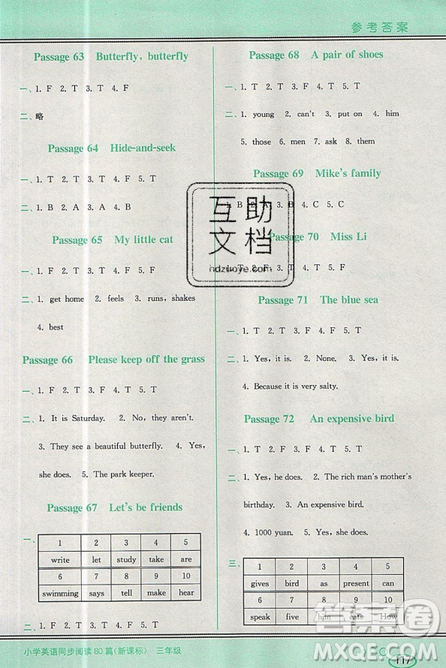 参考答案
Passage 63 Butterfly, butterfly
一、1. F 2. T 3. T 4. F
二、略
Passage 64 Hide-and-seek
一、1. T 2. T 3. T 4. F 5. T
二、1. B 2. A 3. A 4. B 5. A
Passage 65 My little cat
一、1. T 2. F 3. T 4. T 5. T
二、1. get home 2. feels 3. runs, shakes
4. best
Passage 66 Please keep off the grass
一、1. T 2. F 3. F 4. F 5. T
二、1. It is Saturday. 2. No, they aren't.
3. They see a beautiful butterfly. 4. Yes,
she does. 5. The park keeper.
Passage 67 Let's be friends
一、
1 2 3 4 5
write let study take are
6 7 8 9 10
swimming says tell meet here
Passage 68 A pair of shoes
一、1. T 2. T 3. T 4. F 5. F
二、1. young 2. can't 3. put on 4. him
5. those 6. men 7. ask 8. them
Passage 69 Mike's family
1. B 3. B 4. C 5. C
Passage 70 Miss Li
1. T 2. F 3. T 4. T 5. F
Passage 71 The blue sea
一、1. T 2. F 3. F 4. T 5. F
二、1. Yes, it is. 2. None. 3. Yes, it is.
4. Because it is very salty.
Passage 72 An expensive bird
一、1. T 2. F 3. F 4. T 5. T
二、1. Yes, he does. 2. The rich man's mother's
birthday. 3. An expensive bird.
4. 1000 yuan. 5. Yes, she does.
三、
1 2 3 4 5
gives bird as present can
6 7 8 9
sings anything eats How
小学英语同步阅读80篇(新课标) 三年级
117
互助
文档
hdzuoye.com